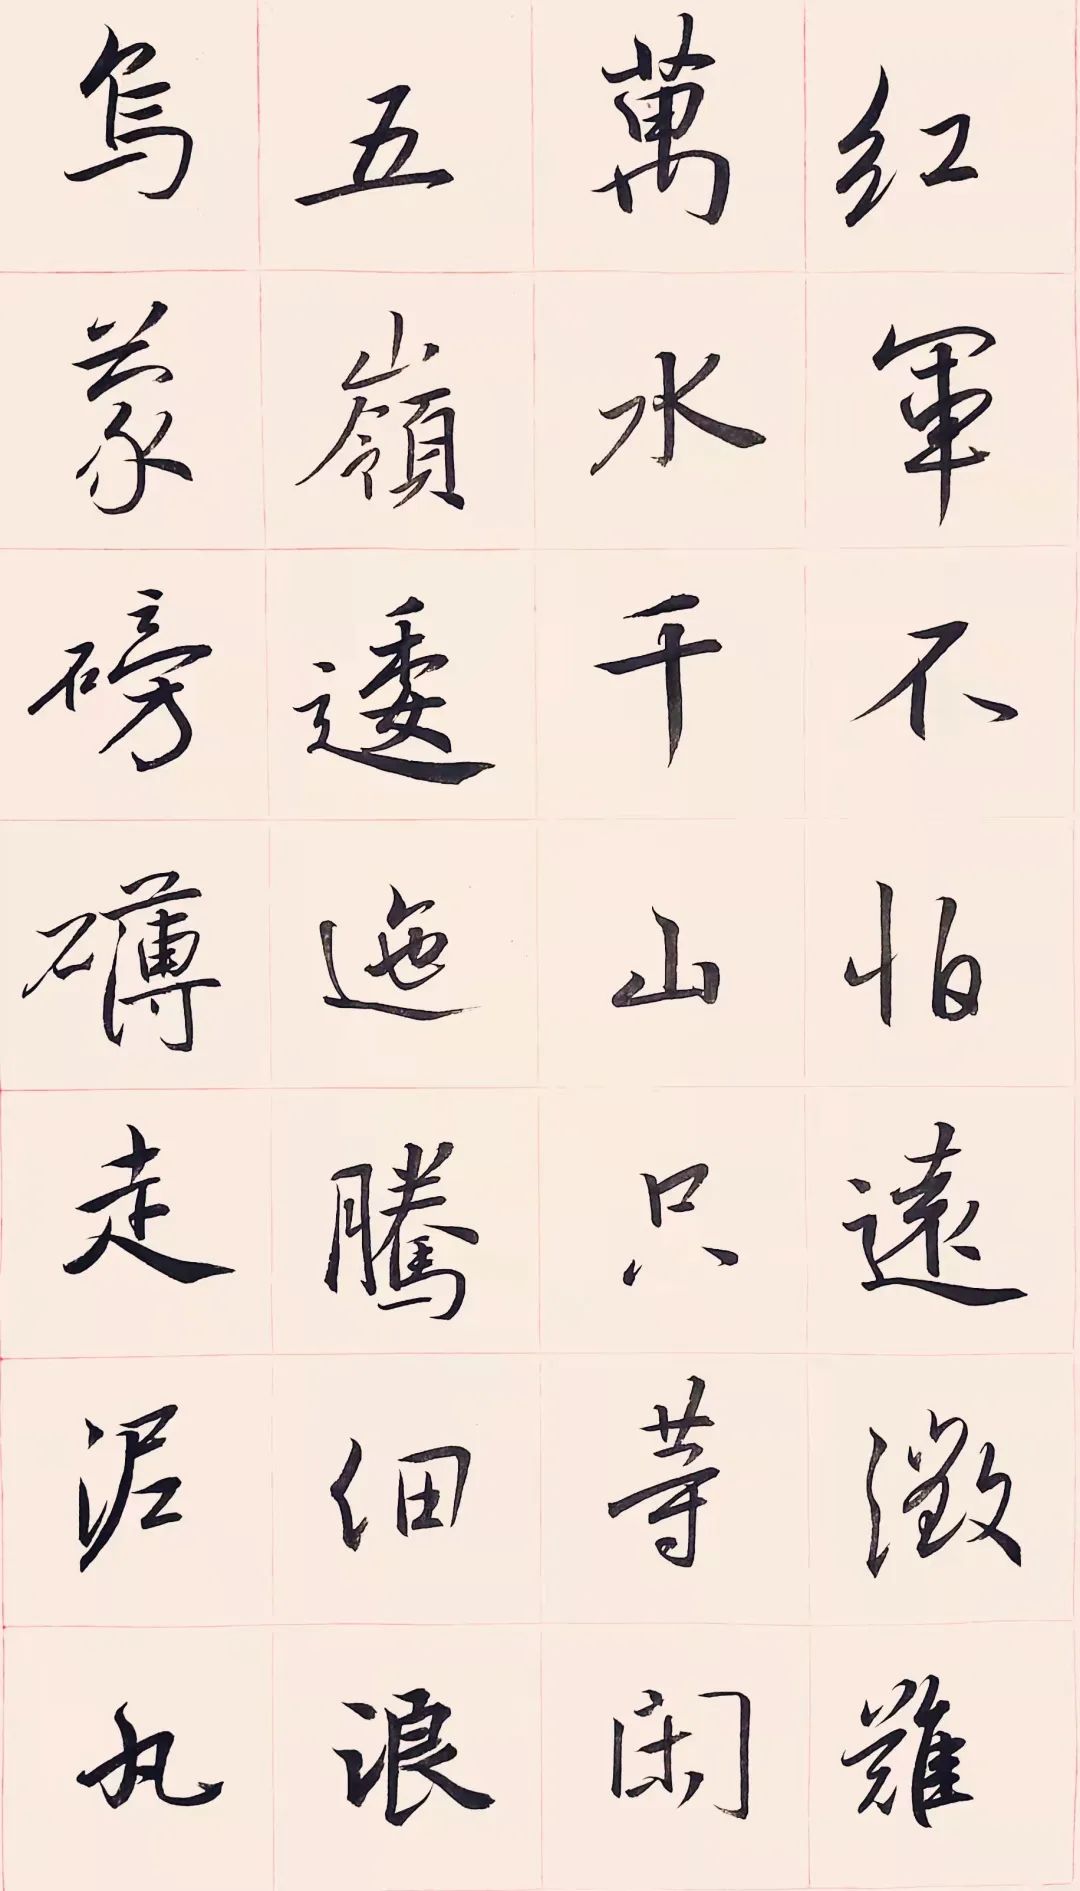 红軍不怕遠征難
萬水千山只等闲
五嶺逶迤騰细浪
烏蒙磅礴走泥丸